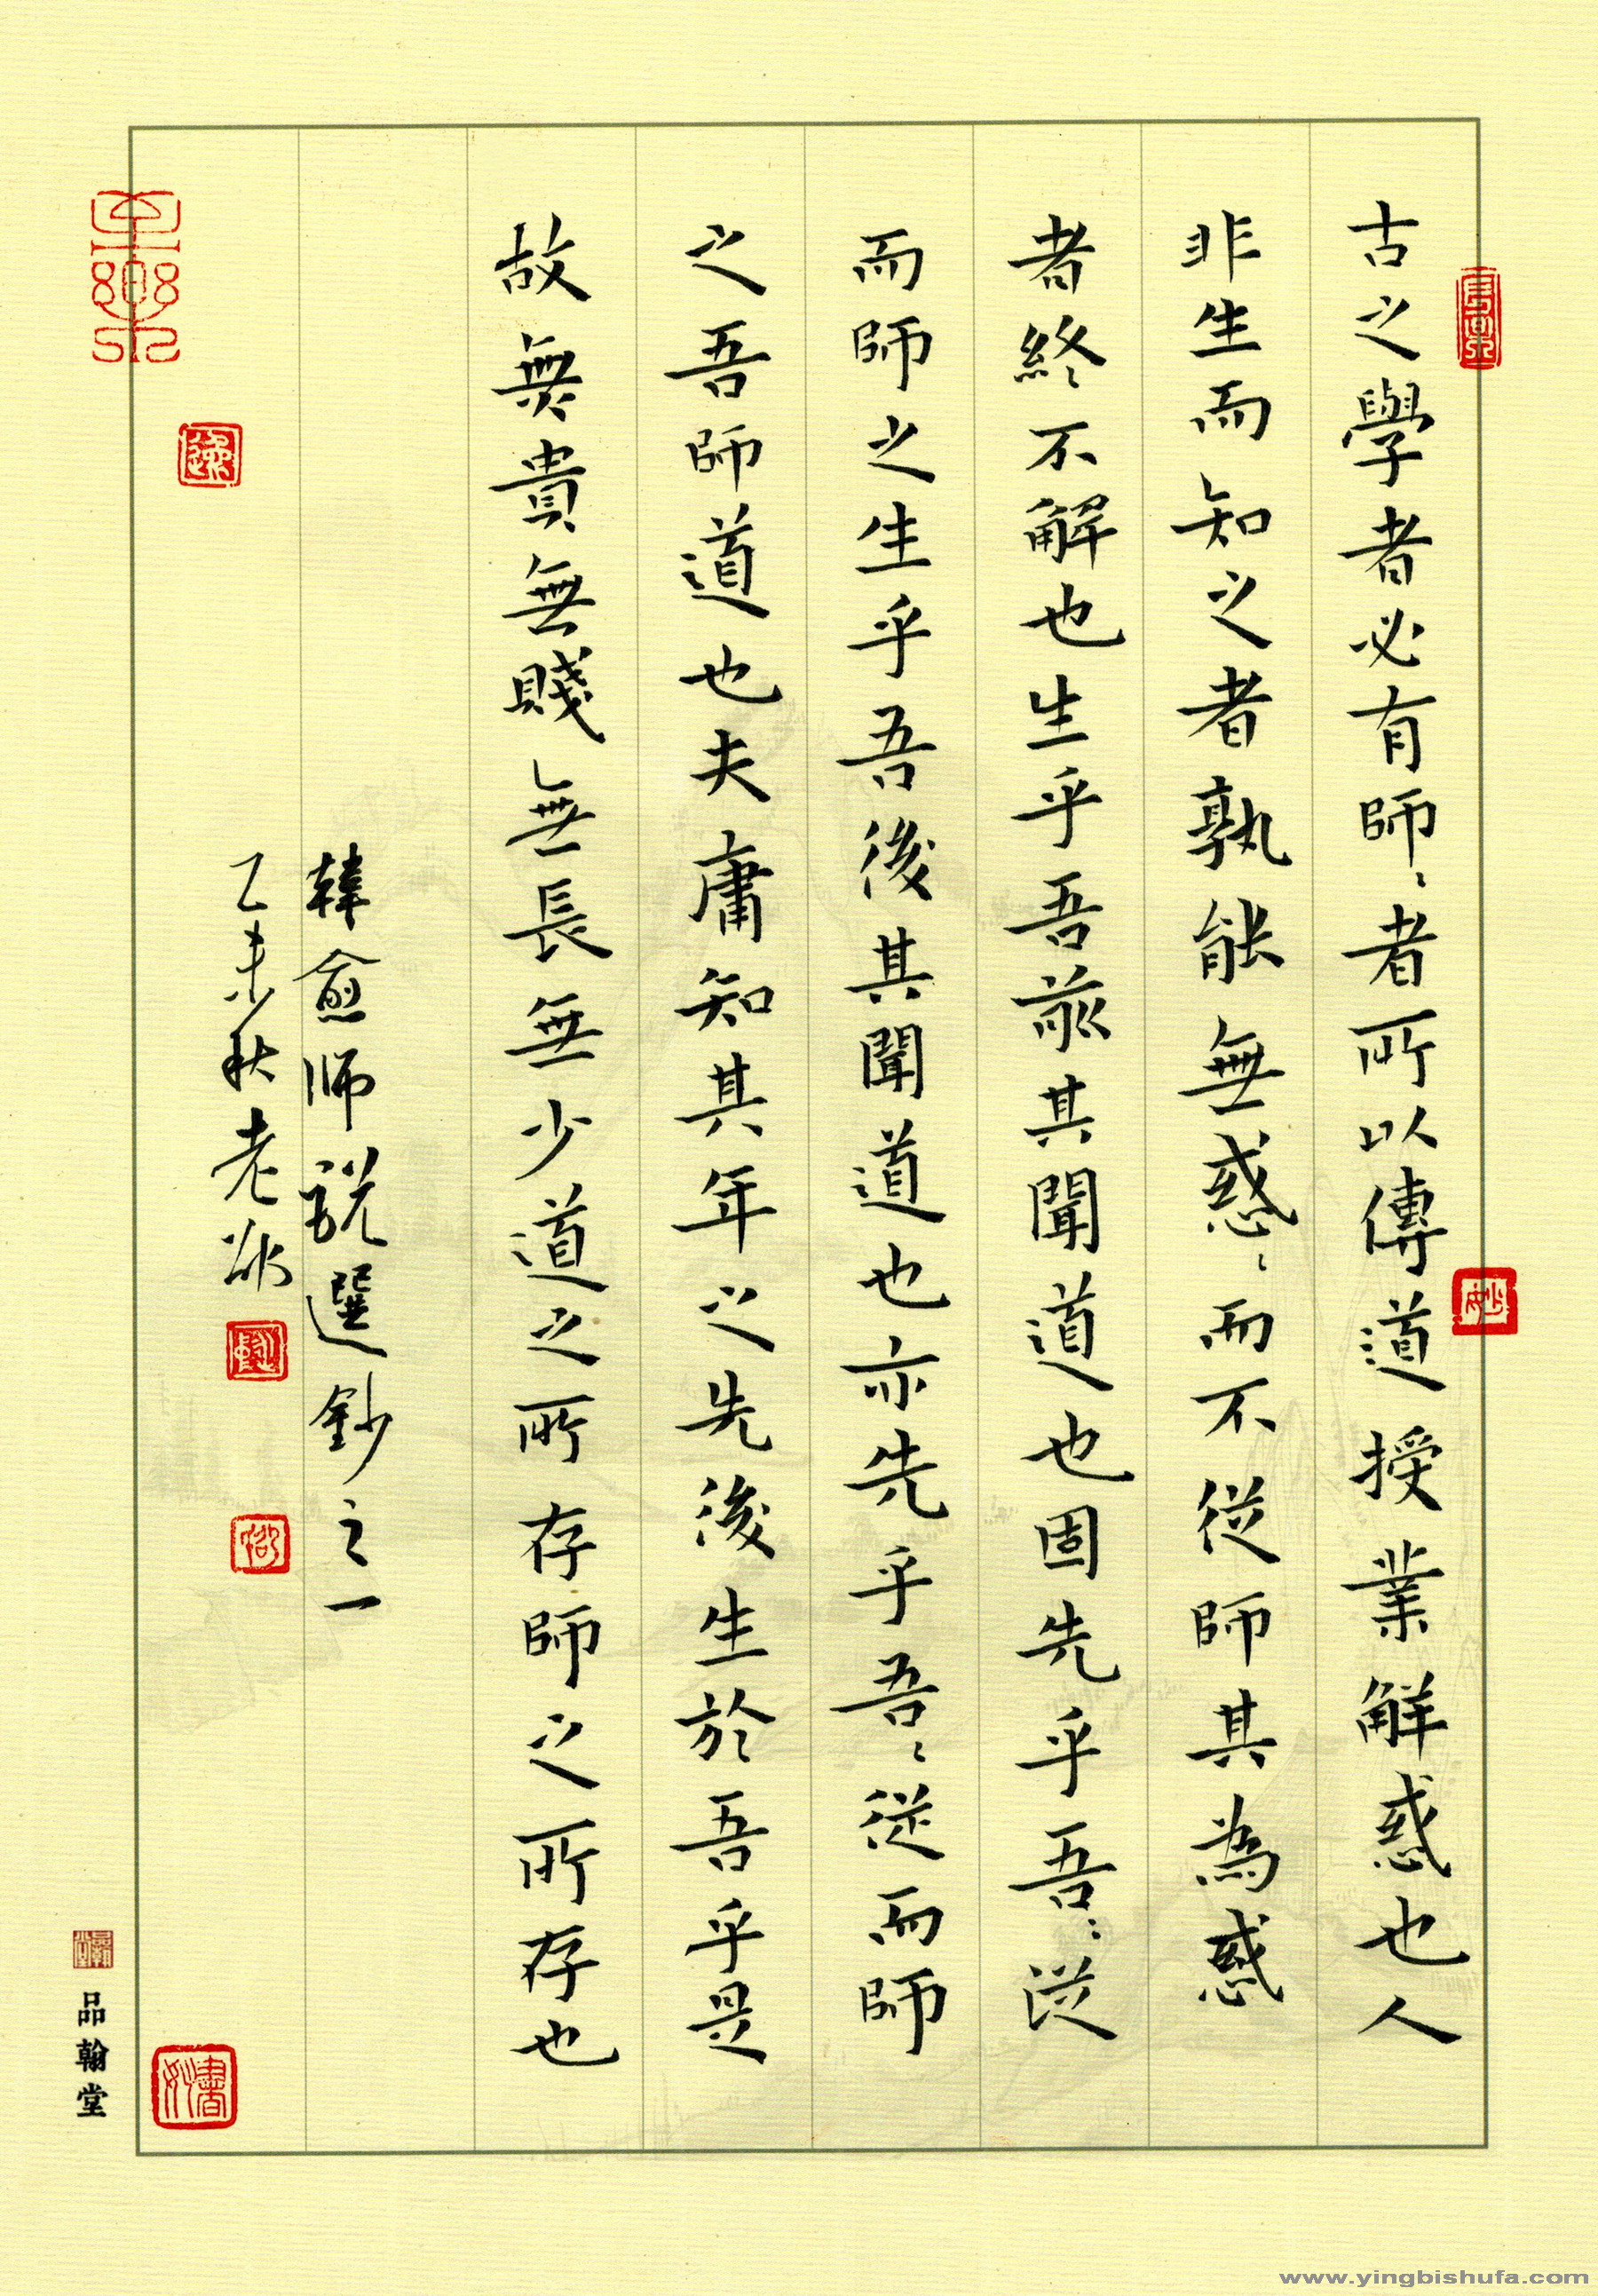 古之學者必有師〻者所以傳道授業解惑也人
非生而知之者孰能無惑〻而不從師其為惑
者終不解也生乎吾歬其聞道也固先乎吾〻從
而師之生乎吾後其聞道也亦先乎吾〻從而師
之吾師道也夫庸知其年之先後生於吾乎是
故無貴無賤無長無少道之所存師之所存也
韓愈师說選鈔之一
乙未秋老
至樂
品翰堂
www.yingbishufa.com